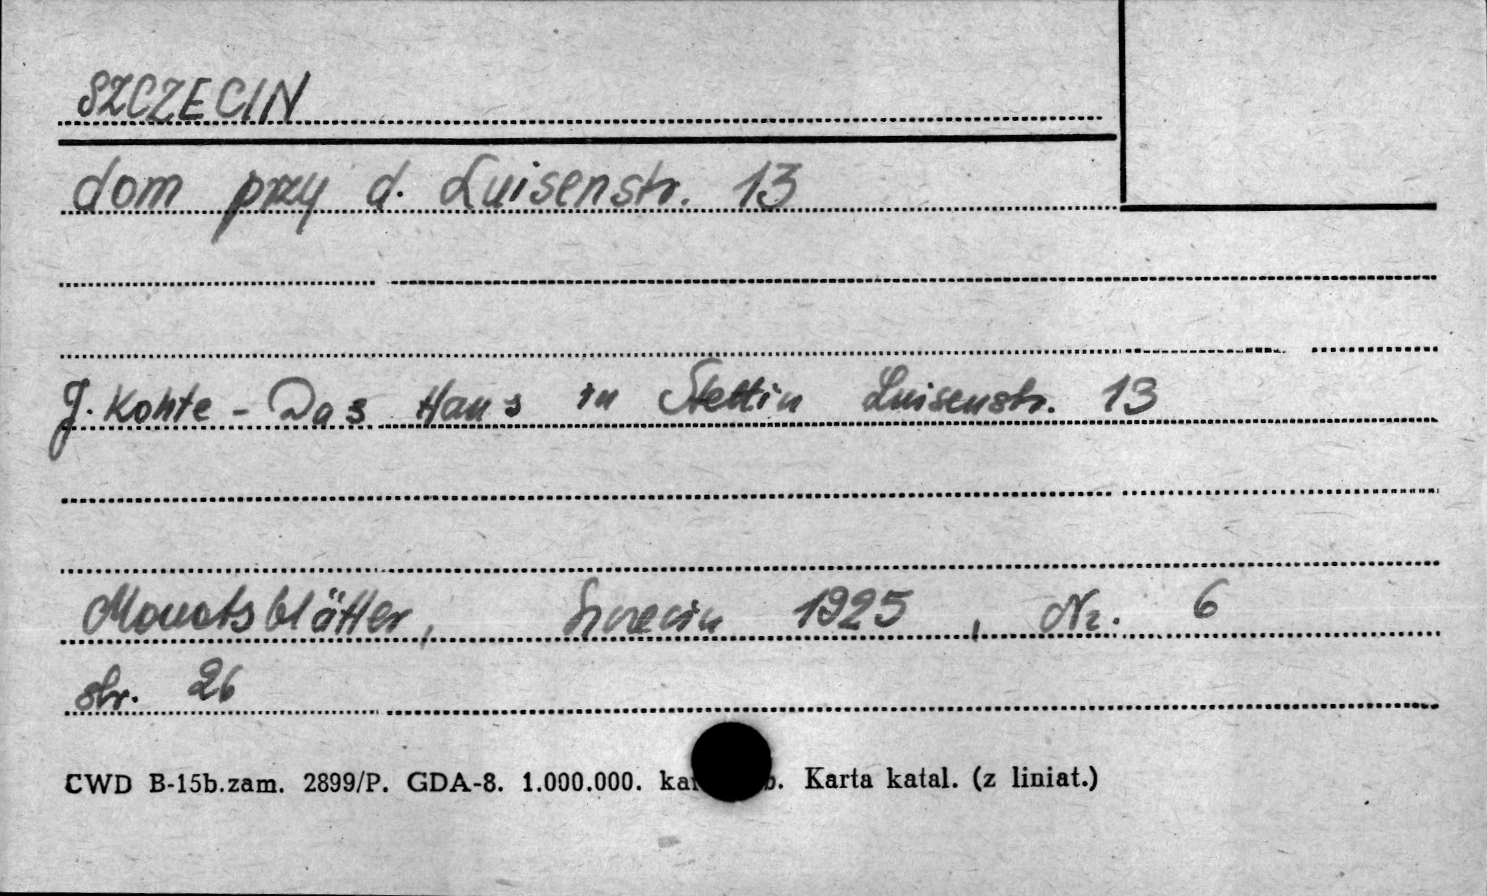 SZCZECIN
dom przy d. Luisenstr. 13
J. Kohte - Das Haus in Stettin Luisenstr. 13
Monatsblätter, Szczecin 1925, Nr. 6
str. 26
CWD B-15b.zam. 2899/P. GDA-8. 1.000.000. Karta katal. (z liniat.)